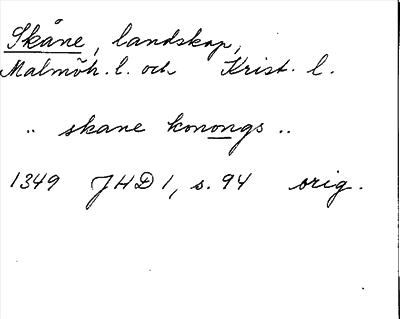 Skåne, landskap,
Malmöh. l. och Krist. l.
.. skane konongs ..
1349 JHD 1, s. 94 orig.